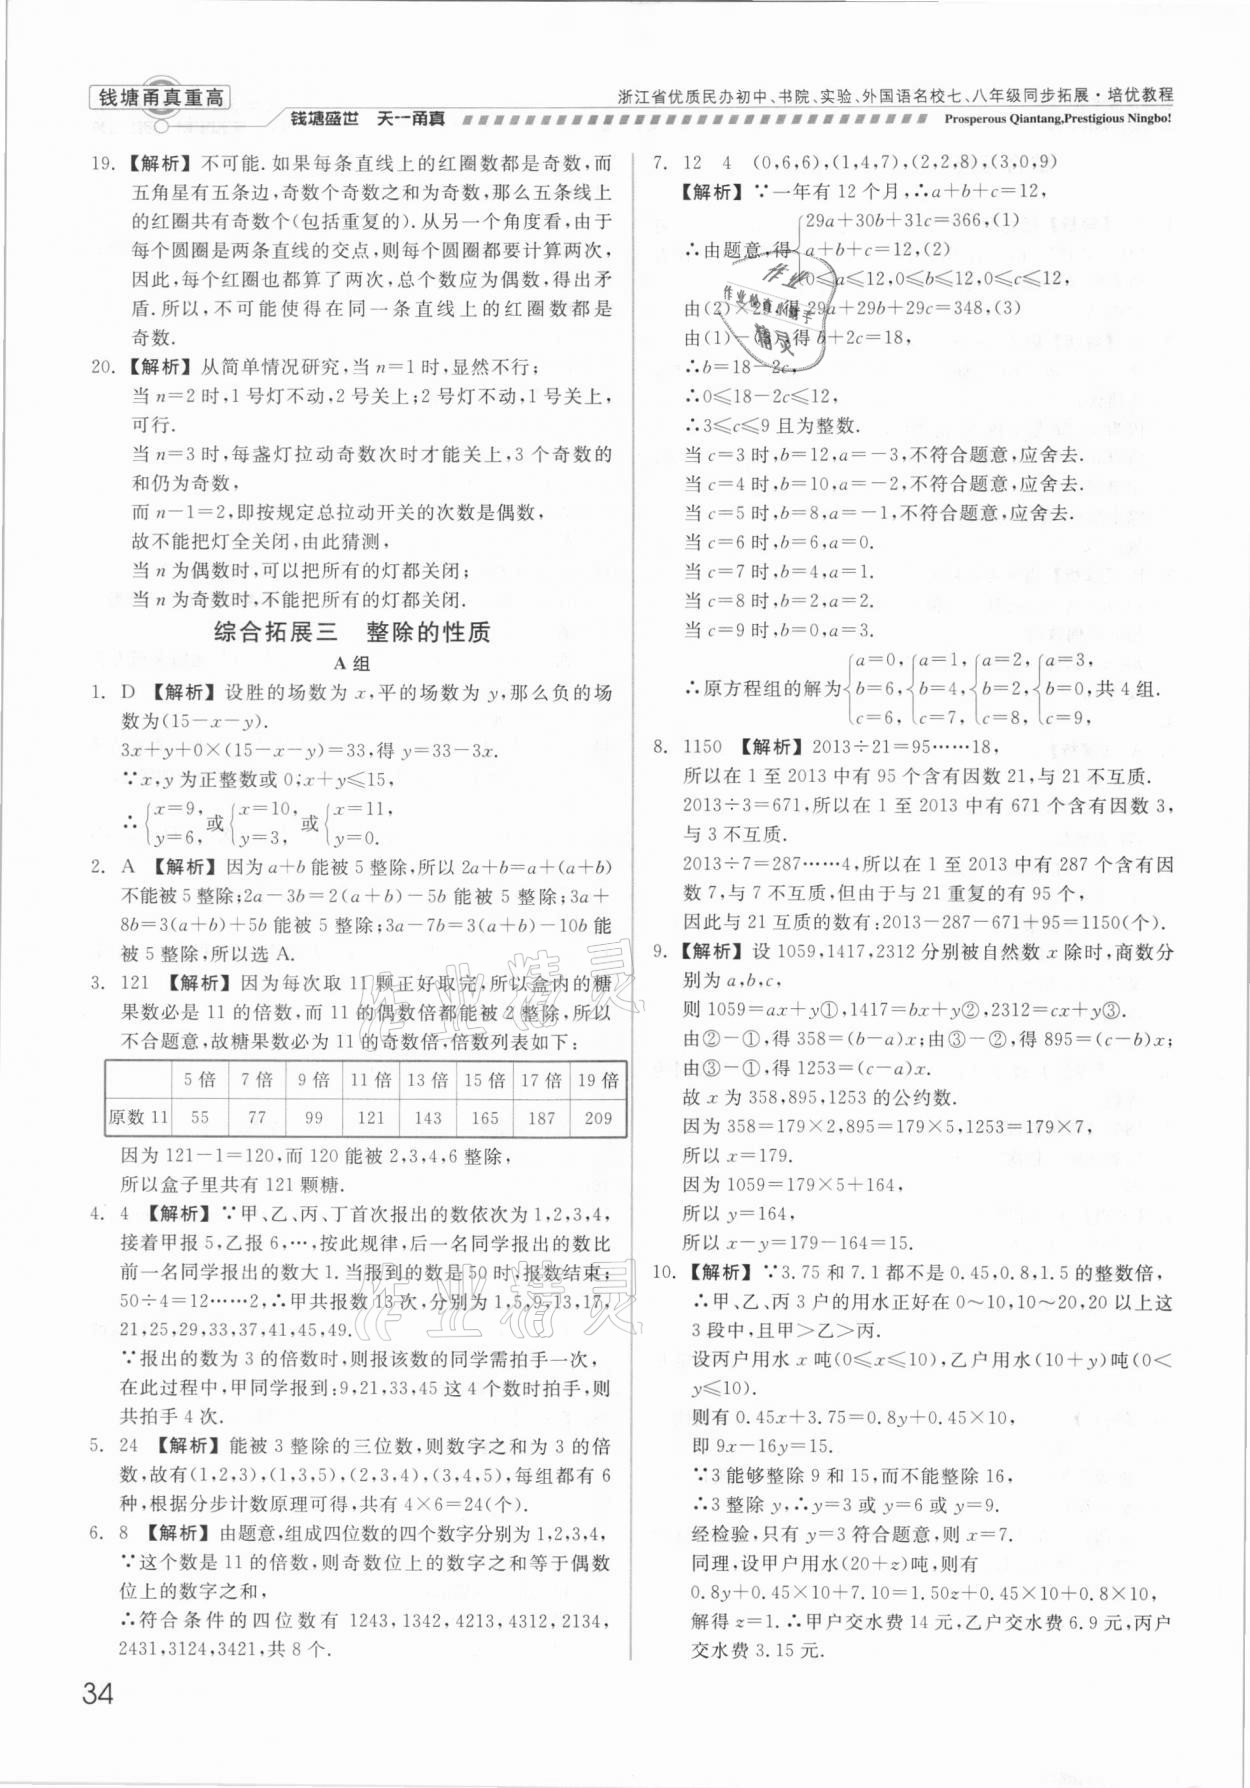 钱塘甬真重高
浙江省优质民办初中、书院、实验、外国语名校七、八年级同步拓展·培优教程
钱塘盛世 天一甬真
Prosperous Qiantang,Prestigious Ningbo!
19. 【解析】不可能.如果每条直线上的红圈数都是奇数,而
五角星有五条边,奇数个奇数之和为奇数,那么五条线上
的红圈共有奇数个(包括重复的).从另一个角度看,由于
每个圆圈是两条直线的交点,则每个圆圈都要计算两次,
因此,每个红圈也都算了两次,总个数应为偶数,得出矛
盾.所以,不可能使得在同一条直线上的红圈数都是
奇数.
20. 【解析】从简单情况研究,当 n=1时,显然不行;
当 n=2时,1号灯不动,2号关上;2号灯不动,1号关上,
可行.
当 n=3时,每盏灯拉动奇数次时才能关上,3个奇数的
和仍为奇数,
而 n-1=2,即按规定总拉动开关的次数是偶数,
故不能把灯全关闭,由此猜测,
当 n 为偶数时,可以把所有的灯都关闭;
当 n 为奇数时,不能把所有的灯都关闭.
综合拓展三 整除的性质
A组
1. D 【解析】设胜的场数为 x,平的场数为 y,那么负的场
数为(15-x-y).
3x+y+0×(15-x-y)=33,得 y=33-3x.
∵x,y 为正整数或 0;x+y⩽15,
∴{x=9, y=6, 或{x=10, y=3, 或{x=11, y=0.
2. A 【解析】因为 a+b 能被 5 整除,所以 2a+b=a+(a+b)
不能被 5 整除;2a-3b=2(a+b)-5b 能被 5 整除;3a+
8b=3(a+b)+5b 能被 5 整除;3a-7b=3(a+b)-10b 能
被 5 整除,所以选 A.
3. 121 【解析】因为每次取 11 颗正好取完,所以盒内的糖
果数必是 11 的倍数,而 11 的偶数倍都能被 2 整除,所以
不合题意,故糖果数必为 11 的奇数倍,倍数列表如下:
5倍 7倍 9倍 11倍 13倍 15倍 17倍 19倍
原数11 55 77 99 121 143 165 187 209
因为 121-1=120,而 120 能被 2,3,4,6 整除,
所以盒子里共有 121 颗糖.
4. 4 【解析】∵甲、乙、丙、丁首次报出的数依次为 1,2,3,4,
接着甲报 5,乙报 6,…,按此规律,后一名同学报出的数比
前一名同学报出的数大 1.当报到的数是 50 时,报数结束;
50÷4=12……2,∴甲共报数 13 次,分别为 1,5,9,13,17,
21,25,29,33,37,41,45,49.
∵报出的数为 3 的倍数时,则报该数的同学需拍手一次,
在此过程中,甲同学报到:9,21,33,45 这 4 个数时拍手,则
共拍手 4 次.
5. 24 【解析】能被 3 整除的三位数,则数字之和为 3 的倍
数,故有(1,2,3),(1,3,5),(2,3,4),(3,4,5),每组都有 6
种,根据分步计数原理可得,共有 4×6=24(个).
6. 8 【解析】由题意,组成四位数的四个数字分别为 1,2,3,4,
∵这个数是 11 的倍数,则奇数位上的数字之和等于偶数
位上的数字之和,
∴符合条件的四位数有 1243,1342,4213,4312,2134,
2431,3124,3421,共 8 个.
34
7. 12 4 (0,6,6),(1,4,7),(2,2,8),(3,0,9)
【解析】∵一年有 12 个月,∴a+b+c=12,
∴由题意,得{29a+30b+31c=366,(1)
a+b+c=12,(2)
0⩽a⩽12,0⩽b⩽12,0⩽c⩽12,
由(2)×29,得 29a+29b+29c=348,(3)
由(1)-(3)得 b+2c=18,
∴b=18-2c,
∴0⩽18-2c⩽12,
∴3⩽c⩽9 且为整数.
当 c=3 时,b=12,a=-3,不符合题意,应舍去.
当 c=4 时,b=10,a=-2,不符合题意,应舍去.
当 c=5 时,b=8,a=-1,不符合题意,应舍去.
当 c=6 时,b=6,a=0.
当 c=7 时,b=4,a=1.
当 c=8 时,b=2,a=2.
当 c=9 时,b=0,a=3.
∴原方程组的解为{a=0, b=6, c=6, {a=1, b=4, c=7, {a=2, b=2, c=8, {a=3, b=0, c=9, 共 4 组.
8. 1150 【解析】2013÷21=95……18,
所以在 1 至 2013 中有 95 个含有因数 21,与 21 不互质.
2013÷3=671,所以在 1 至 2013 中有 671 个含有因数 3,
与 3 不互质.
2013÷7=287……4,所以在 1 至 2013 中有 287 个含有因
数 7,与 7 不互质,但由于与 21 重复的有 95 个,
因此与 21 互质的数有:2013-287-671+95=1150(个).
9. 【解析】设 1059,1417,2312 分别被自然数 x 除时,商数分
别为 a,b,c,
则 1059=ax+y①,1417=bx+y②,2312=cx+y③.
由②-①,得 358=(b-a)x;由③-②,得 895=(c-b)x;
由③-①,得 1253=(c-a)x.
故 x 为 358,895,1253 的公约数.
因为 358=179×2,895=179×5,1253=179×7,
所以 x=179.
因为 1059=179×5+164,
所以 y=164,
所以 x-y=179-164=15.
10. 【解析】∵3.75 和 7.1 都不是 0.45,0.8,1.5 的整数倍,
∴甲、乙、丙 3 户的用水正好在 0～10,10～20,20 以上这
3 段中,且甲>乙>丙.
设丙户用水 x 吨(0⩽x⩽10),乙户用水(10+y)吨(0<
y⩽10).
则有 0.45x+3.75=0.8y+0.45×10,
即 9x-16y=15.
∵3 能够整除 9 和 15,而不能整除 16,
∴3 整除 y,∴y=3 或 y=6 或 y=9.
经检验,只有 y=3 符合题意,则 x=7.
同理,设甲户用水(20+z)吨,则有
0.8y+0.45×10+7.10=1.50z+0.45×10+0.8×10,
解得 z=1.∴甲户交水费 14 元,乙户交水费 6.9 元,丙户
交水费 3.15 元.
作业精灵
作业精灵
作业
作业检查小助手
精灵